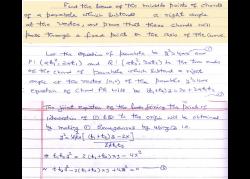 Find the locus of the middle points of chords
of a parabola which subtend a right angle
at the vertex, and prove that these chords all
pass through a fixed point on the axis of the curve.
Let the equation of parabola be y²=4ax —①
P(at₁², 2at₁) and Q(at₂², 2at₂) be the two ends
of the chord of parabola which subtend a right
angle at the vertex of the parabola y²=4ax
equation of chord PQ will be (t₁+t₂)y = 2x + 2at₁t₂
The joint equation of the lines joining the points of
intersection of ① & ② to the origin will be obtained
by making ① homogeneous by using ② i.e.
y² = 4ax
2at₁t₂
t₁t₂y² = 2(t₁+t₂)xy − 4x²